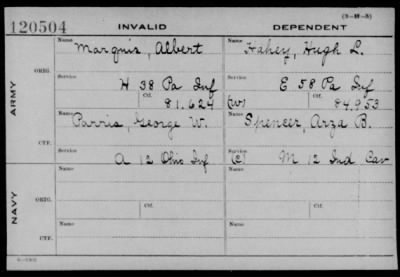 (3-M-5)
120504 INVALID DEPENDENT
Name Name
Marquis, Albert Hahey, Hugh L.
ORIG. Service Service
H 38 Pa Inf E 58 Pa Inf
Ctf. Ctf.
81.624 (W) 84.953
ARMY
Name Name
Parris, George W. Spencer, Arza B.
CTF. Service Service
A 12 Ohio Inf (C) M 12 Ind Cav
Name Name
ORIG.
Ctf. Ctf.
NAVY
Name Name
CTF.